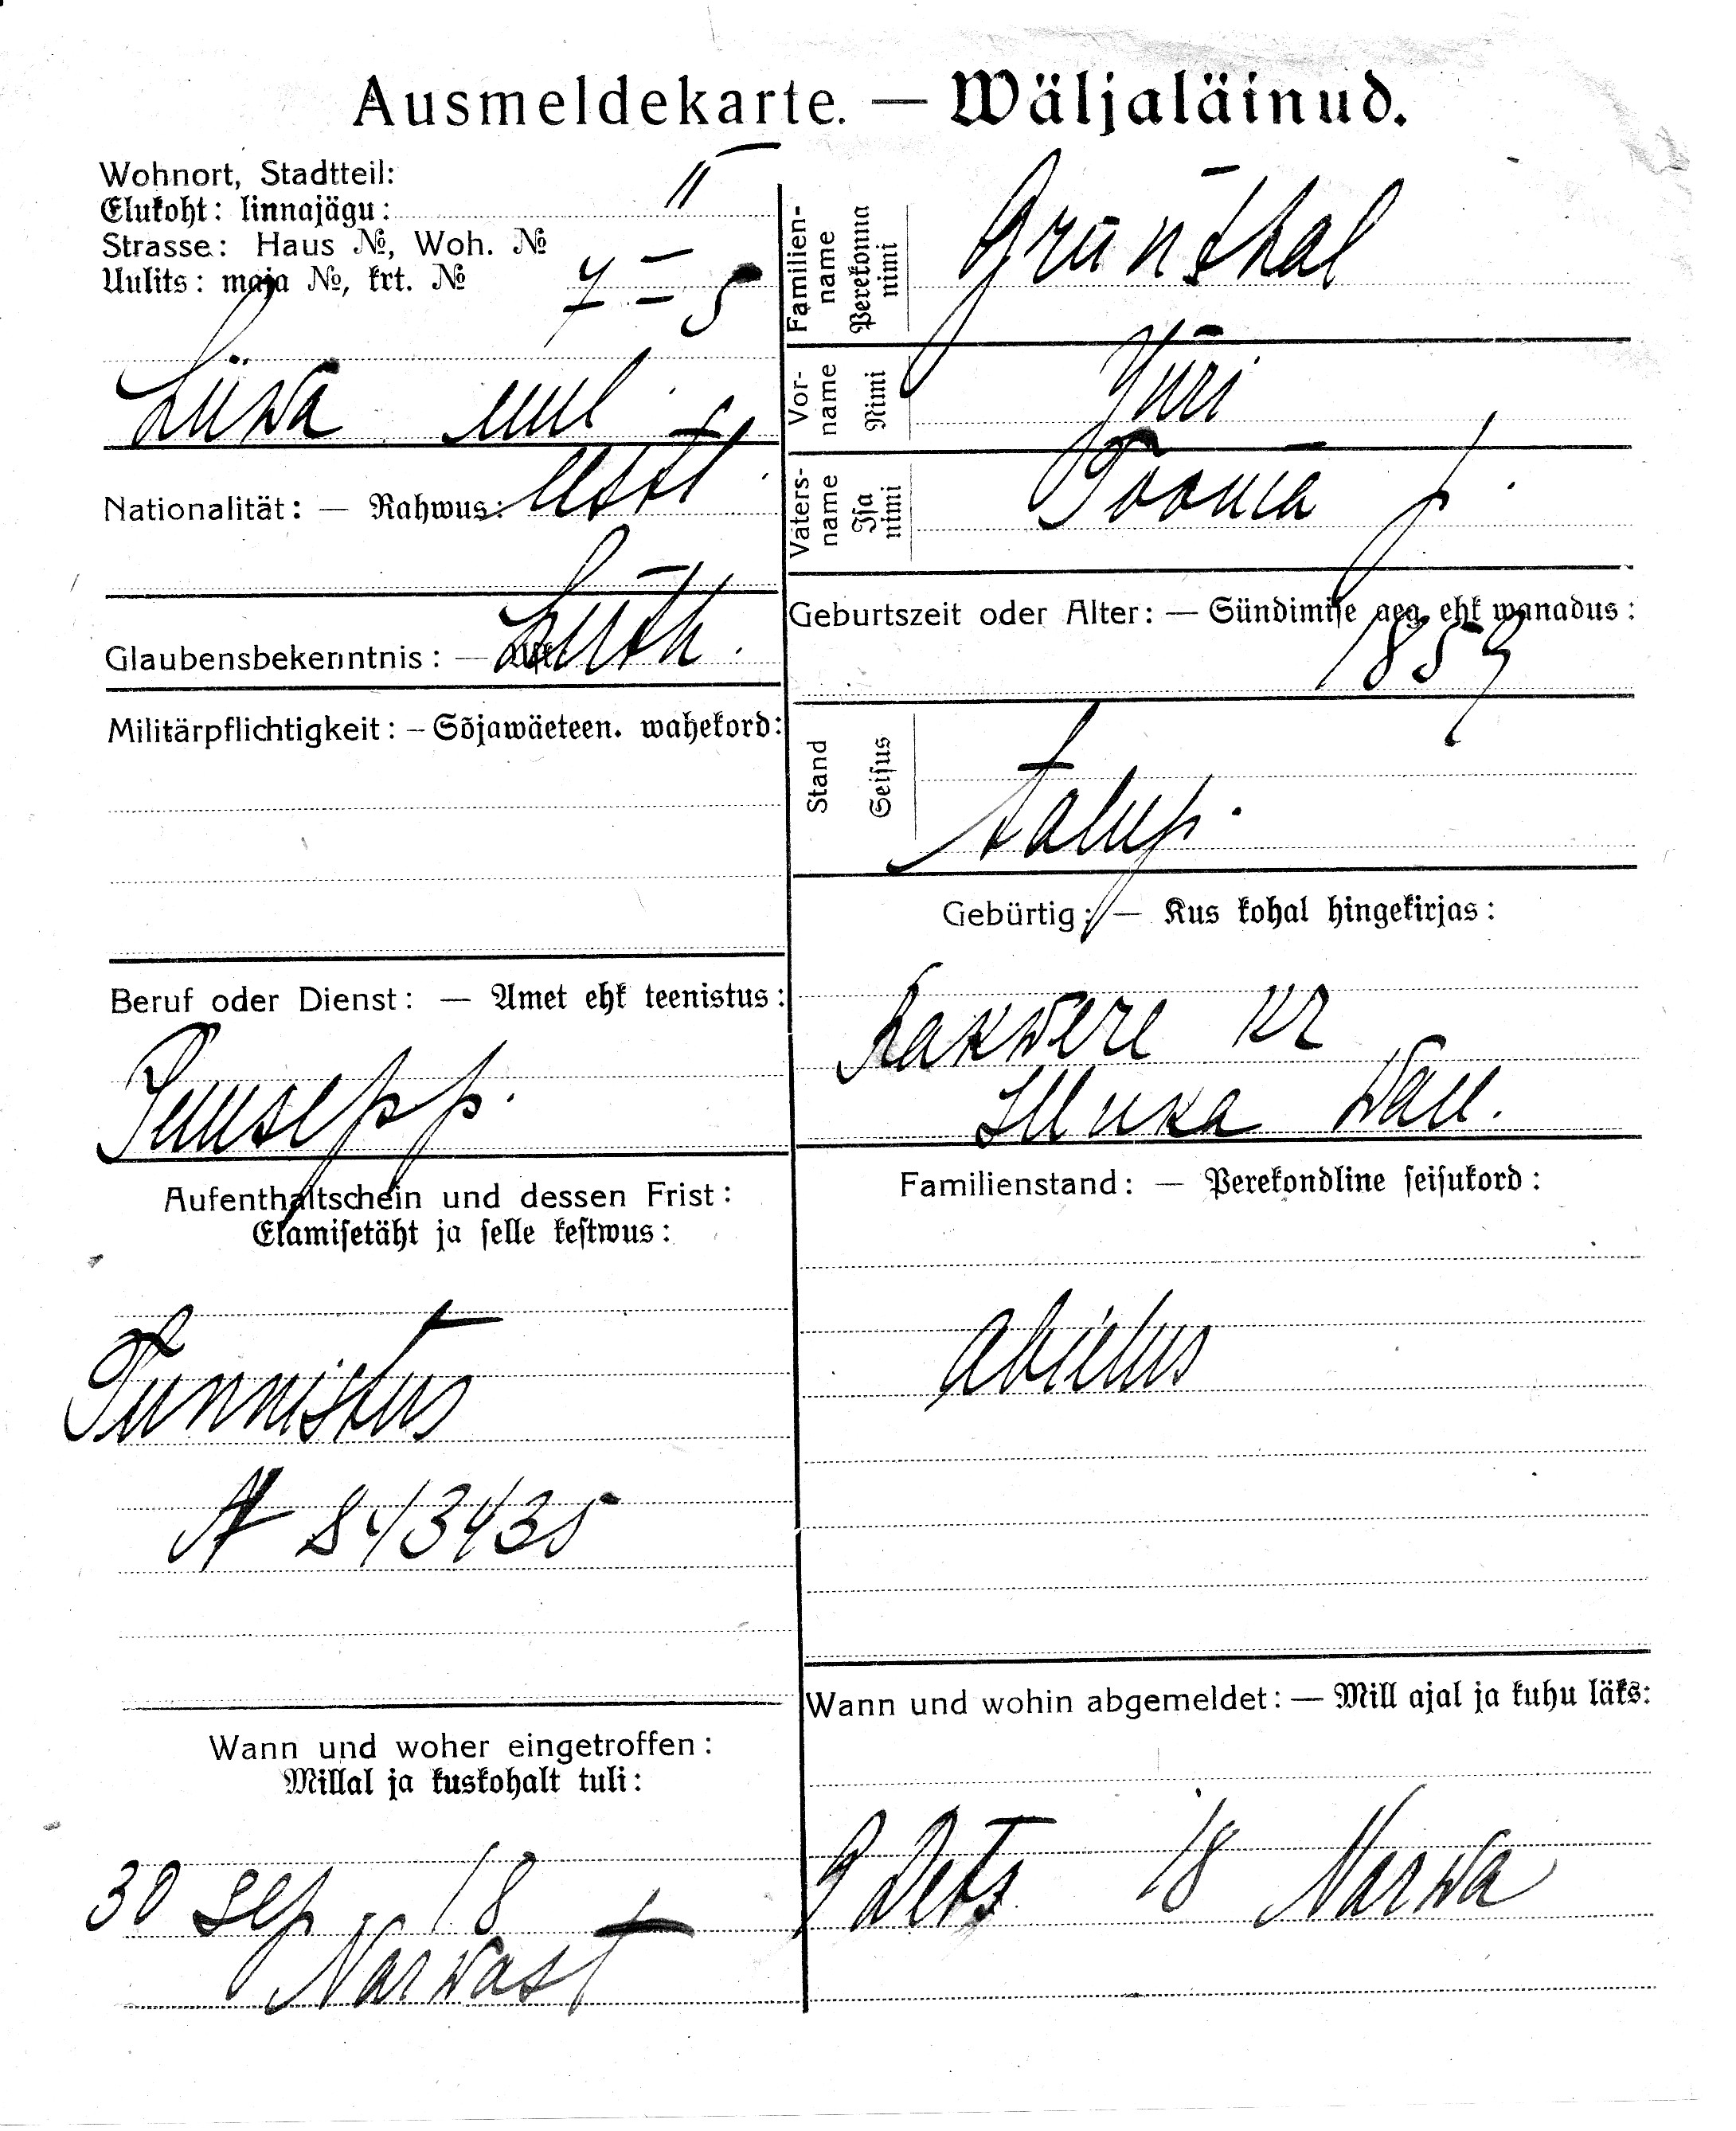 Ausmeldekarte. — Wäljaläinud.
Wohnort, Stadtteil:
Elukoht: linnajägu: II
Strasse: Haus №, Woh. №
Uulits: maja №, krt. № 7 — 5
Liiwa uul.
Nationalität: — Rahwus: eesti.
Glaubensbekenntnis: — Luth.
Militärpflichtigkeit: — Sõjawäeteen. wahekord:
Beruf oder Dienst: — Amet ehk teenistus:
Puusepp.
Aufenthaltschein und dessen Frist:
Elamisetäht ja selle kestwus:
Tunnistus
№ 843435
Wann und woher eingetroffen:
Millal ja kuskohalt tuli:
30 Sep. 18
Narwast
Familien-name Perekonna nimi Grünthal
Vor-name Nimi Jüri
Vaters-name Isa nimi Tooma p.
Geburtszeit oder Alter: — Sündimise aeg ehk wanadus:
1859
Stand Seisus talup.
Gebürtig: — Kus kohal hingekirjas:
Rakwere kr
Illuka wall.
Familienstand: — Perekondline seisukord:
abielus
Wann und wohin abgemeldet: — Mill ajal ja kuhu läks:
9 Dets 18 Narwa